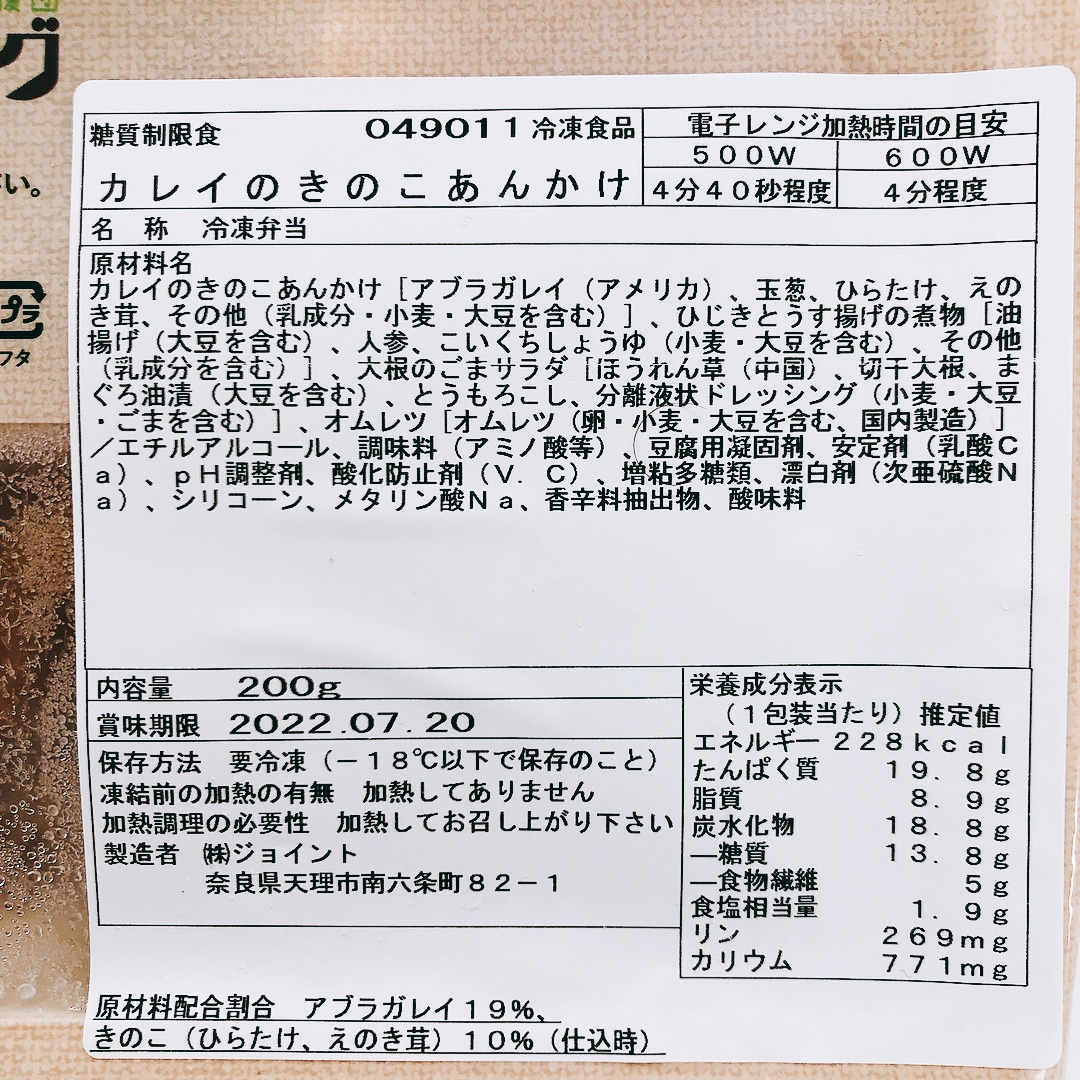 グ
さい。
プラ
フタ
糖質制限食
049011 冷凍食品
カレイのきのこあんかけ
電子レンジ加熱時間の目安
500W 600W
4分40秒程度 4分程度
名 称 冷凍弁当
原材料名
カレイのきのこあんかけ［アブラガレイ（アメリカ）、玉葱、ひらたけ、えの
き茸、その他（乳成分・小麦・大豆を含む）］、ひじきとうす揚げの煮物［油
揚げ（大豆を含む）、人参、こいくちしょうゆ（小麦・大豆を含む）、その他
（乳成分を含む）］、大根のごまサラダ［ほうれん草（中国）、切干大根、ま
ぐろ油漬（大豆を含む）、とうもろこし、分離液状ドレッシング（小麦・大豆
・ごまを含む）］、オムレツ［オムレツ（卵・小麦・大豆を含む、国内製造）］
／エチルアルコール、調味料（アミノ酸等）、豆腐用凝固剤、安定剤（乳酸C
a）、pH調整剤、酸化防止剤（V．C）、増粘多糖類、漂白剤（次亜硫酸N
a）、シリコーン、メタリン酸Na、香辛料抽出物、酸味料
内容量 200g
賞味期限 2022.07.20
保存方法 要冷凍（－18℃以下で保存のこと）
凍結前の加熱の有無 加熱してありません
加熱調理の必要性 加熱してお召し上がり下さい
製造者 ㈱ジョイント
奈良県天理市南六条町82－1
栄養成分表示
（1包装当たり）推定値
エネルギー 228kcal
たんぱく質 19.8g
脂質 8.9g
炭水化物 18.8g
―糖質 13.8g
―食物繊維 5g
食塩相当量 1.9g
リン 269mg
カリウム 771mg
原材料配合割合 アブラガレイ19%、
きのこ（ひらたけ、えのき茸）10%（仕込時）